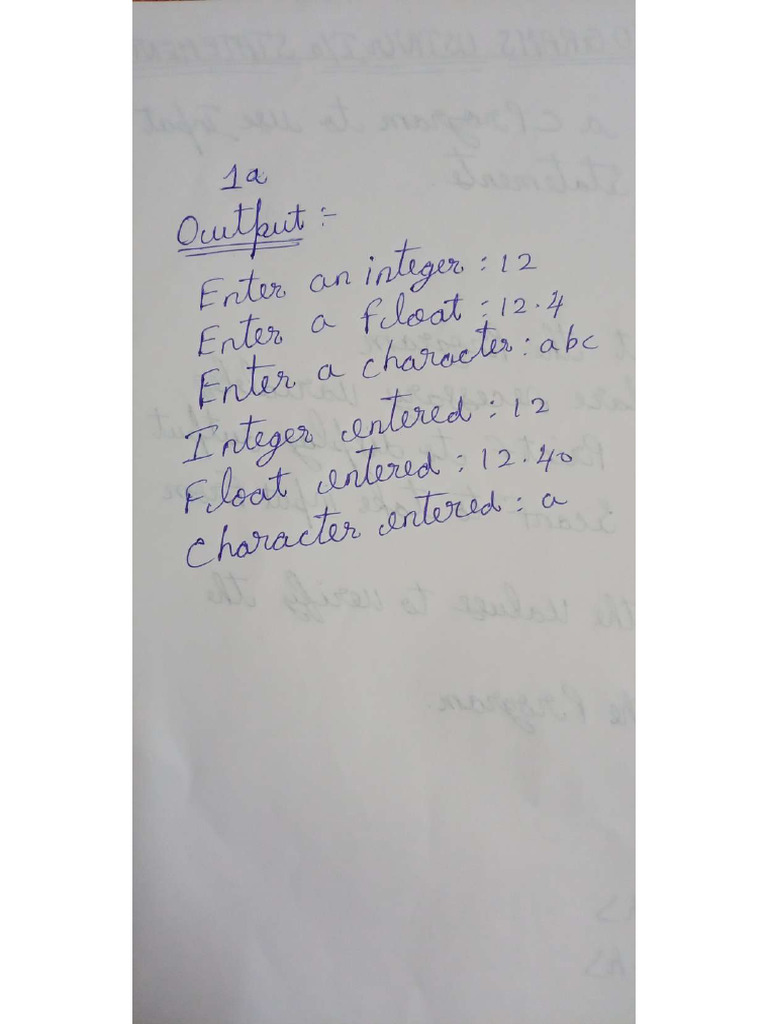 1a
Output :-
Enter an integer : 12
Enter a float : 12.4
Enter a character : abc
Integer entered : 12
Float entered : 12.40
Character entered : a